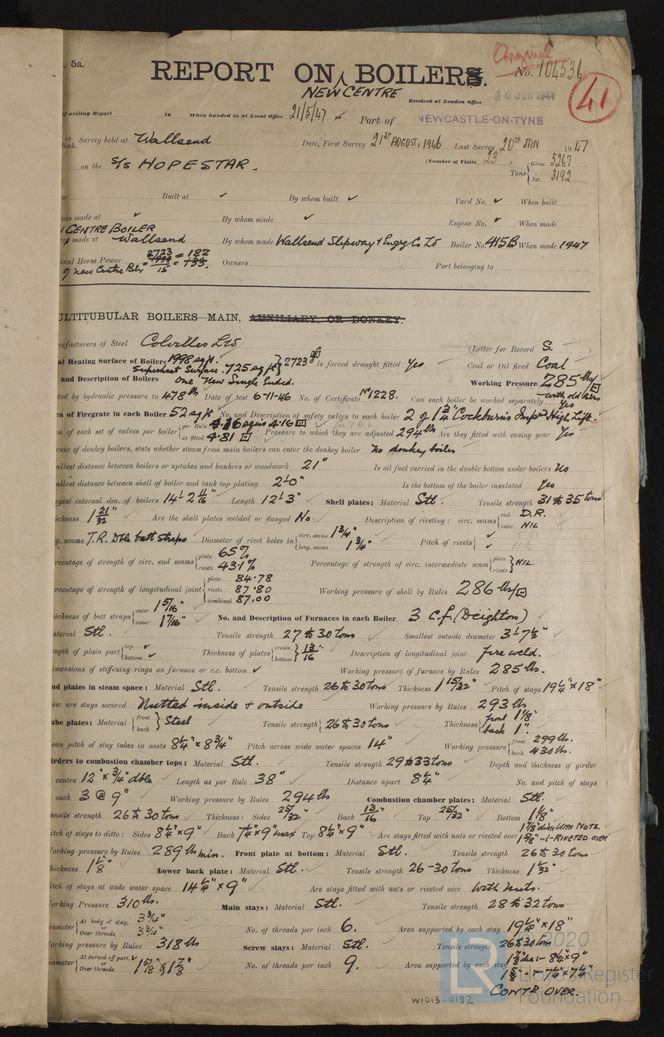 5a.
Original
REPORT ON NEW CENTRE BOILERS.
No. 104536
41
Received at London Office
26 JUN 1947
of writing Report 19 When handed in at Local Office 21/5/47 19 Port of NEWCASTLE-ON-TYNE
in Survey held at Wallsend Date, First Survey 21ST AUGUST, 1946 Last Survey 20TH JAN 1947
Book.
(Number of Visits 23) Gross 5267
on the S/S HOPESTAR. Tons Net 3192
Built at ✓ By whom built ✓ Yard No. ✓ When built
made at ✓ By whom made ✓ Engine No. ✓ When made
CENTRE BOILER
made at Wallsend By whom made Wallsend Slipway & Engrg Co Ld Boiler No. 415B When made 1947
Horse Power 2723/15 = 182 Owners Port belonging to
of new Centre Blr
MULTITUBULAR BOILERS—MAIN, AUXILIARY, OR DONKEY.
Manufacturers of Steel Colvilles Ltd (Letter for Record S.
Heating Surface of Boilers 1998 sq ft. 2723 Is forced draught fitted Yes Coal or Oil fired Coal
Superheat Surface 725 sq ft
and Description of Boilers One New Single Ended. Working Pressure 285 lbs
tested by hydraulic pressure to 478 lb Date of test 6-11-46 No. of Certificate No 1228. Can each boiler be worked separately Yes with old blrs
Area of Firegrate in each Boiler 52 sq ft No. and Description of safety valves to each boiler 2 of 1 3/4" Cockburn's Impd High Lift.
of each set of valves per boiler per Rule 4.16 as fitted 4.81 Pressure to which they are adjusted 294 lbs Are they fitted with easing gear Yes
case of donkey boilers, state whether steam from main boilers can enter the donkey boiler no donkey boiler
smallest distance between boilers or uptakes and bunkers or woodwork 21" Is oil fuel carried in the double bottom under boilers No
smallest distance between shell of boiler and tank top plating 2'-0" Is the bottom of the boiler insulated Yes
largest internal dia. of boilers 14'-2 11/16" Length 12'-3" Shell plates: Material Stl. Tensile strength 31 to 35 tons
thickness 1 21/32" Are the shell plates welded or flanged No Description of riveting: circ. seams end D.R. inter. NIL
long. seams T.R. Dble butt straps Diameter of rivet holes in circ. seams 1 3/4" long. seams 1 3/4" Pitch of rivets
percentage of strength of circ. end seams plate 65% rivets 43.1% Percentage of strength of circ. intermediate seam plate rivets NIL.
percentage of strength of longitudinal joint plate 84.78 rivets 87.80 combined 87.00 Working pressure of shell by Rules 286 lbs
thickness of butt straps outer 1 5/16" inner 1 7/16" No. and Description of Furnaces in each Boiler 3 C.f. (Deighton)
Material Stl. Tensile strength 27 to 30 tons Smallest outside diameter 3'-7 1/2"
length of plain part top bottom Thickness of plates crown bottom 13/16 Description of longitudinal joint fire weld.
dimensions of stiffening rings on furnace or c.c. bottom ✓ Working pressure of furnace by Rules 285 lbs.
End plates in steam space: Material Stl. Tensile strength 26 to 30 tons Thickness 1 15/32" Pitch of stays 19 1/4" x 18"
how are stays secured Nutted inside & outside Working pressure by Rules 293 lbs
Tube plates: Material front back Steel Tensile strength 26 to 30 tons Thickness front 1 1/8" back 1"
mean pitch of stay tubes in nests 8 1/4" x 8 3/4" Pitch across wide water spaces 14" Working pressure front 299 lbs. back 430 lbs.
Girders to combustion chamber tops: Material Stl. Tensile strength 29 to 33 tons Depth and thickness of girder
centre 12" x 3/4" dble Length as per Rule 38" Distance apart 8 1/4" No. and pitch of stays
each 3 @ 9" Working pressure by Rules 294 lbs Combustion chamber plates: Material Stl.
Tensile strength 26 to 30 tons Thickness: Sides 25/32" Back 13/16" Top 25/32" Bottom 1 1/8"
Pitch of stays to ditto: Sides 8 1/4" x 9" Back 7 1/4" x 9" max Top 8 1/4" x 9" Are stays fitted with nuts or riveted over 1 7/8" dia WITH NUTS. 1 5/8" — RIVETED OVER
Working pressure by Rules 289 lb min. Front plate at bottom: Material Stl. Tensile strength 26 to 30 tons
thickness 1 1/8" Lower back plate: Material Stl. Tensile strength 26-30 tons Thickness 1 1/32"
Pitch of stays at wide water space 14 1/4" x 9" Are stays fitted with nuts or riveted over With nuts.
Working Pressure 310 lbs. Main stays: Material Stl. Tensile strength 28 to 32 tons
diameter At body of stay, 3 3/4" Over threads 3 3/4" No. of threads per inch 6. Area supported by each stay 19 1/4" x 18"
Working pressure by Rules 318 lbs Screw stays: Material Stl. Tensile strength 26 to 30 tons
diameter At turned off part, or Over threads 1 5/8" & 1 7/8" No. of threads per inch 9. Area supported by each stay
CONTD OVER.
W1013-0182
LR
2020
Lloyd's Register
Foundation